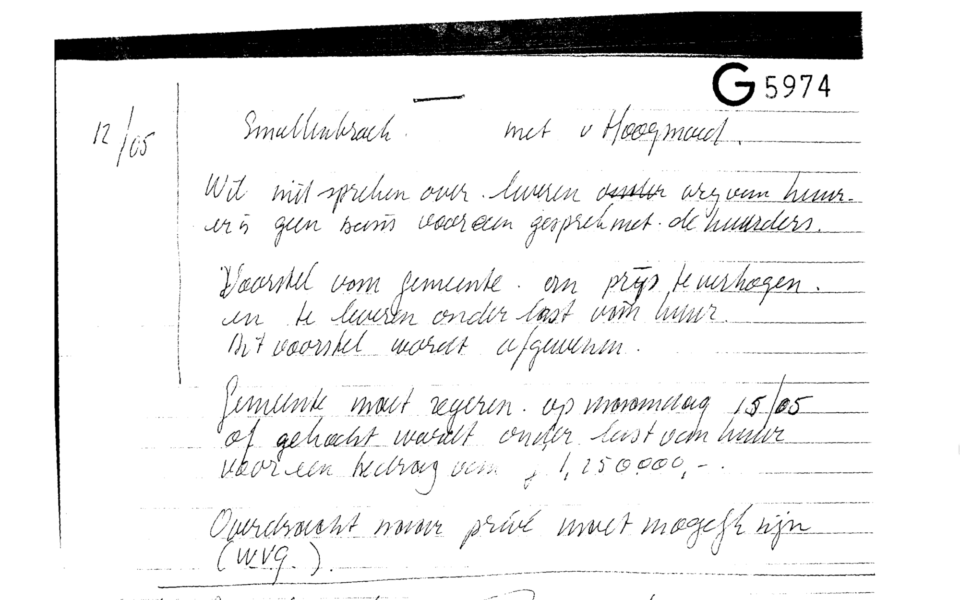 G 5974
12/05 Smallenbroek. met v Hoogmoed.
Wil niet spreken over. leveren onder arg van huur.
er is geen basis voor een gesprek met. de huurders.
Voorstel van gemeente. om prijs te verhogen.
en te leveren onder last van huur.
Dit voorstel wordt afgewezen.
Gemeente moet regeren. op maandag 15/05
of gekocht wordt onder last van huur
voor een bedrag van f 1,250.000,-.
Overdracht naar privé moet mogelijk zijn
(WVG.).